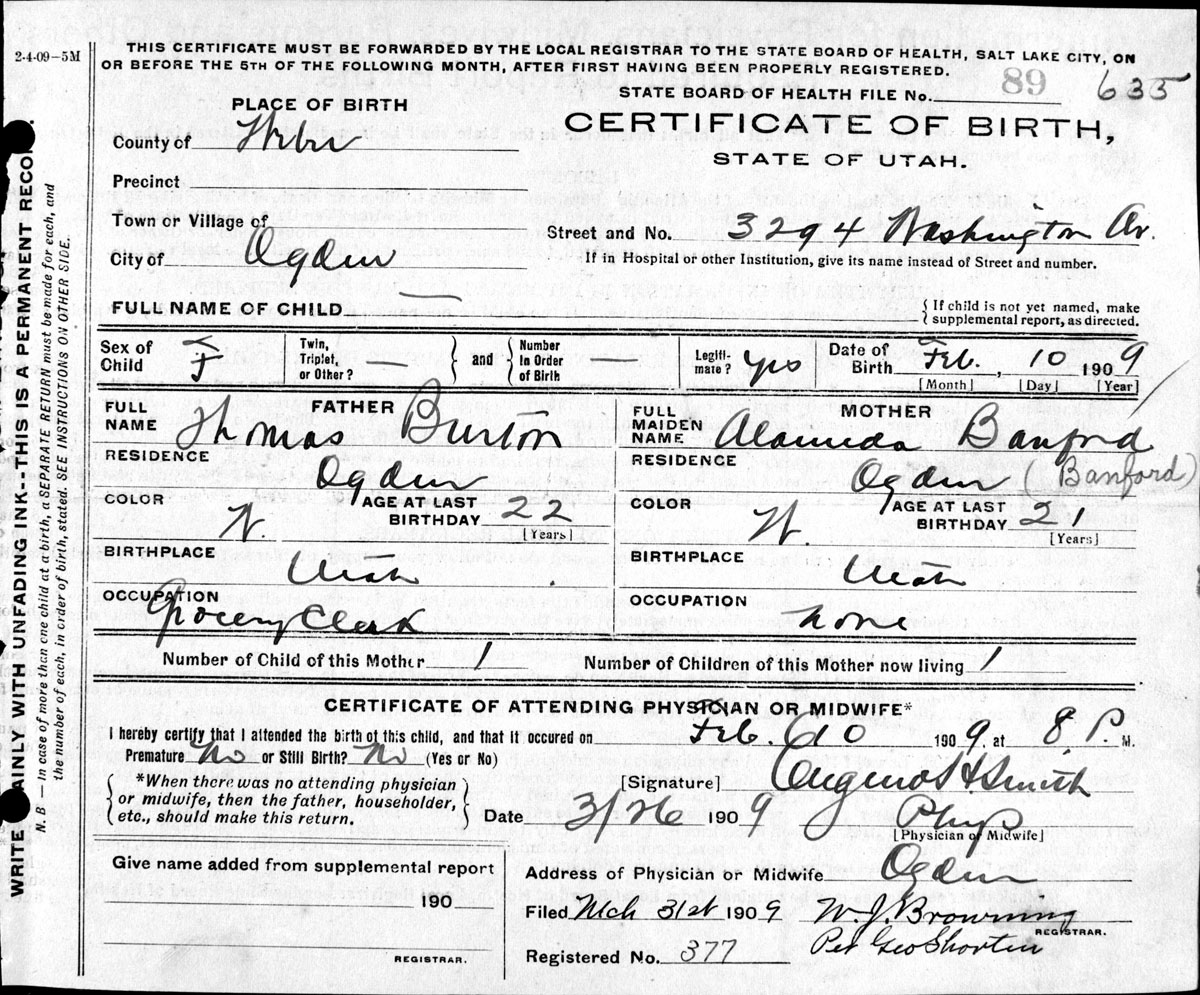 2-4-09-5M
THIS CERTIFICATE MUST BE FORWARDED BY THE LOCAL REGISTRAR TO THE STATE BOARD OF HEALTH, SALT LAKE CITY, ON
OR BEFORE THE 5TH OF THE FOLLOWING MONTH, AFTER FIRST HAVING BEEN PROPERLY REGISTERED.
STATE BOARD OF HEALTH FILE No. 89 635
PLACE OF BIRTH
CERTIFICATE OF BIRTH,
STATE OF UTAH.
County of Weber
Precinct
Town or Village of
Street and No. 3294 Washington Av.
City of Ogden
If in Hospital or other Institution, give its name instead of Street and number.
FULL NAME OF CHILD —
{ If child is not yet named, make
supplemental report, as directed.
Sex of Child F
Twin, Triplet, or Other? —
and { Number in Order of Birth
Legiti-mate? yes
Date of Birth Feb. 10 1909
[Month] [Day] [Year]
FATHER
FULL NAME Thomas Burton
MOTHER
FULL MAIDEN NAME Alameda Banford
RESIDENCE Ogden
RESIDENCE Ogden (Banford)
COLOR W.
AGE AT LAST BIRTHDAY 22
[Years]
COLOR W.
AGE AT LAST BIRTHDAY 21
[Years]
BIRTHPLACE Utah
BIRTHPLACE Utah
OCCUPATION Grocery Clerk
OCCUPATION none
Number of Child of this Mother 1
Number of Children of this Mother now living 1
CERTIFICATE OF ATTENDING PHYSICIAN OR MIDWIFE*
I hereby certify that I attended the birth of this child, and that it occured on Feb. 10 1909. at 8 P. M.
Premature No or Still Birth? No (Yes or No)
*When there was no attending physician
or midwife, then the father, householder,
etc., should make this return.
[Signature] Smith
Date 3/26 1909
Phys
[Physician or Midwife]
Give name added from supplemental report
190
REGISTRAR.
Address of Physician or Midwife Ogden
Filed Mch 31st 1909 W. J. Browning
REGISTRAR.
Per Geo Shorten
Registered No. 377
WRITE PLAINLY WITH UNFADING INK--THIS IS A PERMANENT RECORD.
N. B — In case of more than one child at a birth, a SEPARATE RETURN must be made for each, and
the number of each, in order of birth, stated. SEE INSTRUCTIONS ON OTHER SIDE.